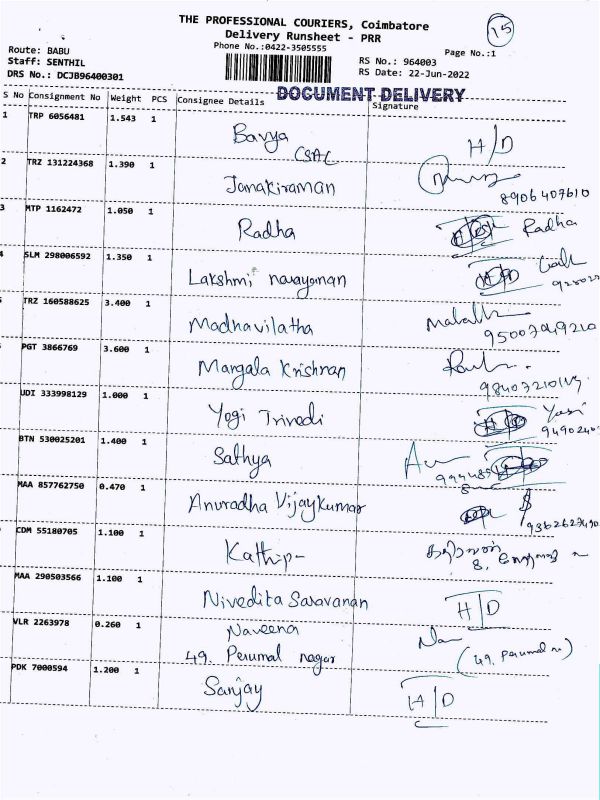 15
THE PROFESSIONAL COURIERS, Coimbatore
Delivery Runsheet - PRR
Phone No.:0422-3505555
Page No.:1
Route: BABU
Staff: SENTHIL
DRS No.: DCJB96400301
RS No.: 964003
RS Date: 22-Jun-2022
DOCUMENT DELIVERY
S No Consignment No Weight PCS Consignee Details Signature
1 TRP 6056481 1.543 1 Bavya H/D
CSAC
2 TRZ 131224368 1.390 1 Janakiraman
8906407610
3 MTP 1162472 1.050 1 Radha Radha
4 SLM 298006592 1.350 1 Lakshmi narayanan
TRZ 160588625 3.400 1 Madhavilatha
95007949210
PGT 3866769 3.600 1 Mangala Krishnan
UDI 333998129 1.000 1 Yogi Trivedi
BTN 530025201 1.400 1 Sathya
MAA 857762750 0.470 1 Anuradha Vijaykumar
CDM 55180705 1.100 1
MAA 290503566 1.100 1 Nivedita Saravanan H/D
VLR 2263978 0.260 1 Naveena
49. Perumal nagar (49. Perumal n)
PDK 7000594 1.200 1 Sanjay H/D